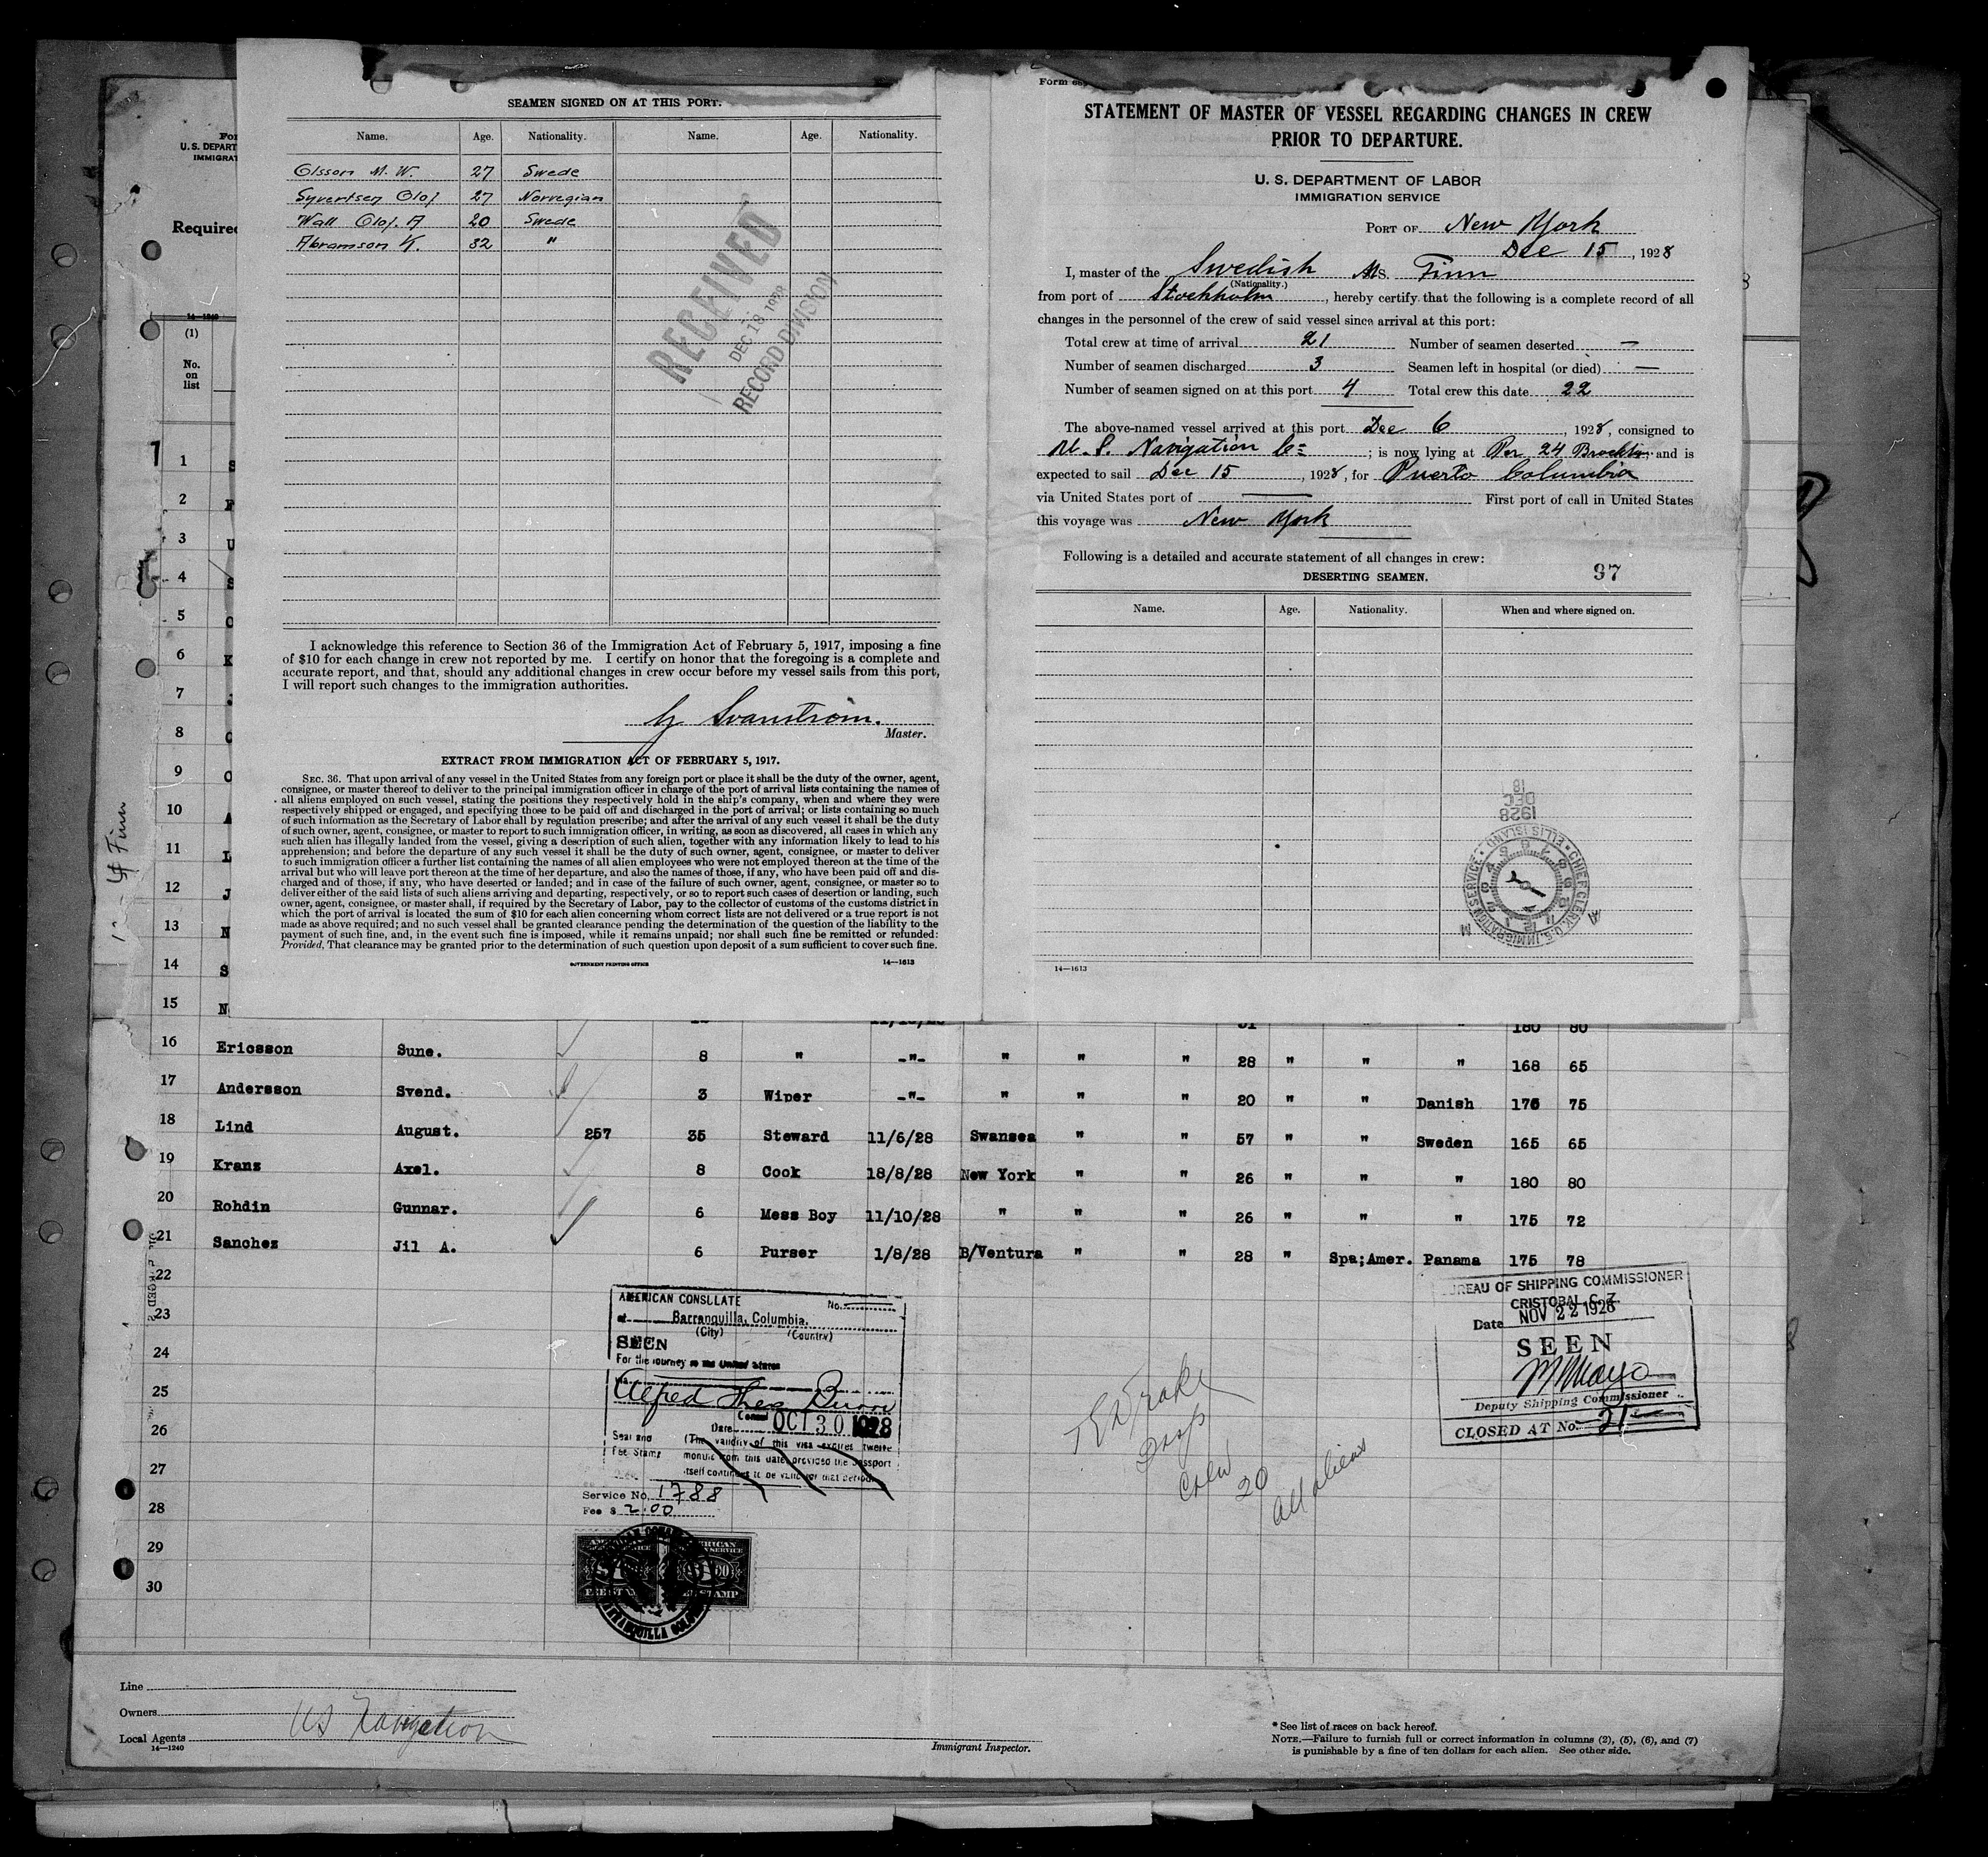 SEAMEN SIGNED ON AT THIS PORT.
Name. Age. Nationality. Name. Age. Nationality.
Olsson M. W. 27 Swede
Syvertsen Olof 27 Norvegian
Wall Olof. A 20 Swede
Abramson K. 32 "
RECEIVED
DEC 18 1928
RECORD DIVISION
I acknowledge this reference to Section 36 of the Immigration Act of February 5, 1917, imposing a fine
of $10 for each change in crew not reported by me. I certify on honor that the foregoing is a complete and
accurate report, and that, should any additional changes in crew occur before my vessel sails from this port,
I will report such changes to the immigration authorities.
Svanstrom.
Master.
EXTRACT FROM IMMIGRATION ACT OF FEBRUARY 5, 1917.
SEC. 36. That upon arrival of any vessel in the United States from any foreign port or place it shall be the duty of the owner, agent,
consignee, or master thereof to deliver to the principal immigration officer in charge of the port of arrival lists containing the names of
all aliens employed on such vessel, stating the positions they respectively hold in the ship's company, when and where they were
respectively shipped or engaged, and specifying those to be paid off and discharged in the port of arrival; or lists containing so much
of such information as the Secretary of Labor shall by regulation prescribe; and after the arrival of any such vessel it shall be the duty
of such owner, agent, consignee, or master to report to such immigration officer, in writing, as soon as discovered, all cases in which any
such alien has illegally landed from the vessel, giving a description of such alien, together with any information likely to lead to his
apprehension; and before the departure of any such vessel it shall be the duty of such owner, agent, consignee, or master to deliver
to such immigration officer a further list containing the names of all alien employees who were not employed thereon at the time of the
arrival but who will leave port thereon at the time of her departure, and also the names of those, if any, who have been paid off and dis-
charged and of those, if any, who have deserted or landed; and in case of the failure of such owner, agent, consignee, or master so to
deliver either of the said lists of such aliens arriving and departing, respectively, or so to report such cases of desertion or landing, such
owner, agent, consignee, or master shall, if required by the Secretary of Labor, pay to the collector of customs of the customs district in
which the port of arrival is located the sum of $10 for each alien concerning whom correct lists are not delivered or a true report is not
made as above required; and no such vessel shall be granted clearance pending the determination of the question of the liability to the
payment of such fine, and, in the event such fine is imposed, while it remains unpaid; nor shall such fine be remitted or refunded:
Provided, That clearance may be granted prior to the determination of such question upon deposit of a sum sufficient to cover such fine.
GOVERNMENT PRINTING OFFICE 14—1613
Form
STATEMENT OF MASTER OF VESSEL REGARDING CHANGES IN CREW
PRIOR TO DEPARTURE.
U. S. DEPARTMENT OF LABOR
IMMIGRATION SERVICE
PORT OF New York
Dec 15, 1928
I, master of the Swedish Ms. Finn
(Nationality.)
from port of Stockholm, hereby certify that the following is a complete record of all
changes in the personnel of the crew of said vessel since arrival at this port:
Total crew at time of arrival 21 Number of seamen deserted —
Number of seamen discharged 3 Seamen left in hospital (or died) —
Number of seamen signed on at this port 4 Total crew this date 22
The above-named vessel arrived at this port Dec 6, 1928, consigned to
U. S. Navigation Co; is now lying at Per 24 Brooklin; and is
expected to sail Dec 15, 1928, for Puerto Columbia
via United States port of — First port of call in United States
this voyage was New York
Following is a detailed and accurate statement of all changes in crew:
DESERTING SEAMEN. 37
Name. Age. Nationality. When and where signed on.
DEC 18
1928
CHIEF CLERK, U.S. IMMIGRATION SERVICE • ELLIS ISLAND
14—1613
U. S. DEPART
IMMIGRAT
Required
14—1240
(1)
No.
on
list
1 S
2
3 U
4 S
5
6 K
7 J
8
9
10 A
11 L
12 J
13 N
14 S
15 N 180 80
16 Ericsson Sune. 8 " -"- " " " 28 " " " 168 65
17 Andersson Svend. 3 Wiper -"- " " " 20 " " Danish 176 75
18 Lind August. 257 35 Steward 11/6/28 Swansea " " 57 " " Sweden 165 65
19 Krans Axel. 8 Cook 18/8/28 New York " " 26 " " " 180 80
20 Rohdin Gunnar. 6 Mess Boy 11/10/28 " " " 26 " " " 175 72
21 Sanchez Jil A. 6 Purser 1/8/28 B/Ventura " " 28 " Spa;Amer. Panama 175 78
22
23
24
25
26
27
28
29
30
Finn
AMERICAN CONSULATE No.
at Barranquilla, Columbia.
(City) (Country)
SEEN
For the journey to the United States
Alfred Theo Burri
Consul
Date OCT 30 1928
Seal and (The validity of this visa expires twelve
Fee Stamp months from this date, provided the passport
itself continues to be valid for that period.
Service No. 1788
Fee $ 2.00
Crew
20
All aliens
BUREAU OF SHIPPING COMMISSIONER
CRISTOBAL C. Z.
Date NOV 22 1928
SEEN
M Mayo
Deputy Shipping Commissioner
CLOSED AT No. 21
Line
Owners
US Navigation
Local Agents
14—1240
Immigrant Inspector.
* See list of races on back hereof.
NOTE.—Failure to furnish full or correct information in columns (2), (5), (6), and (7)
is punishable by a fine of ten dollars for each alien. See other side.